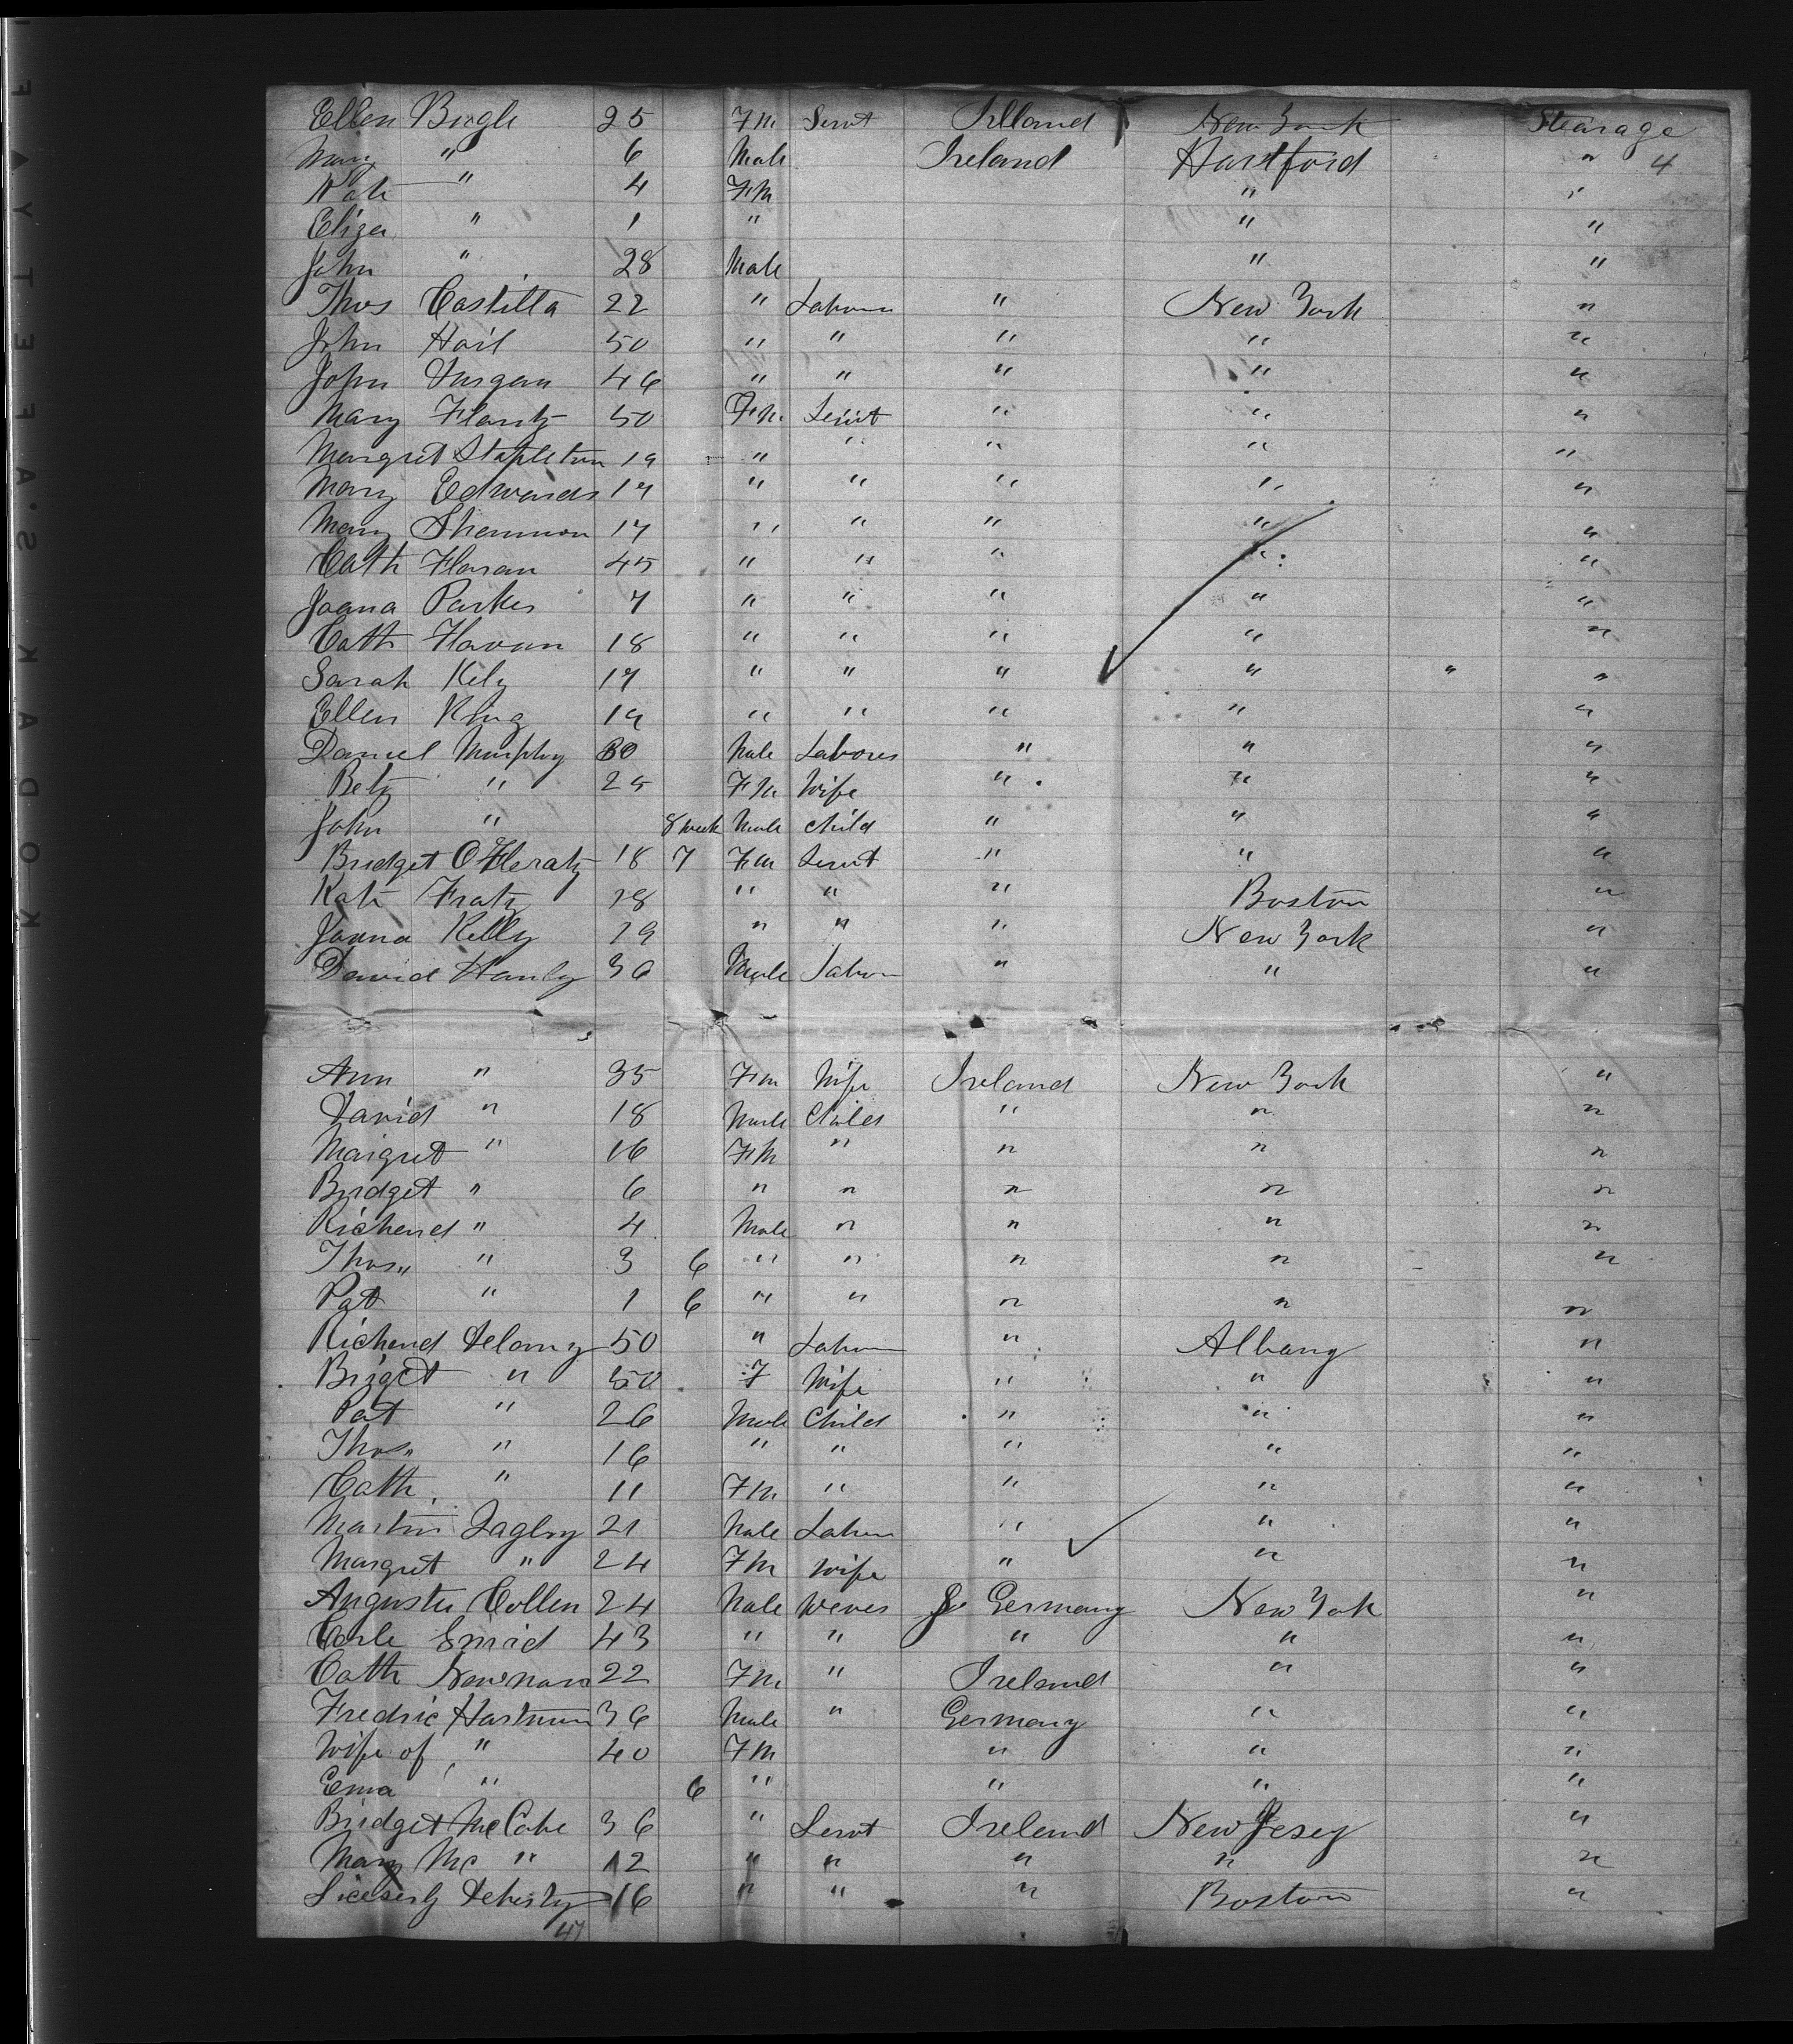 Ellen Bugle 25 Fm Servt Irland New York Stearage
Mary " 6 Male Ireland Hartford " 4
Kate " 4 Fm " "
Eliza " 1 " " "
John " 28 Male " "
Thos Costilla 22 " Labour " New York "
John Hail 50 " " " " "
John Durgan 46 " " " " "
Mary Flarity 50 Fm Servt " " "
Margret Stapleton 19 " " " " "
Mary Edwards 17 " " " " "
Mary Shannon 17 " " " " "
Cath Floran 45 " " " " "
Joana Parker 7 " " " " "
Cath Flavan 18 " " " " "
Sarah Kely 17 " " " " " "
Ellen King 19 " " " " "
Daniel Murphy 30 Male Labores " " "
Bety " 25 Fm Wife " " "
John " 8 week Male Child " " "
Bridget OFleraty 18 7 Fm Servt " " "
Kate Fraty 18 " " " Boston "
Joana Kelly 19 " " " New York "
David Hanly 36 Male Labour " " "
Ann " 35 Fm Wife Ireland New York "
David " 18 Male Child " " "
Margret " 16 Fm " " " "
Bridget " 6 " " " " "
Richerd " 4 Male " " " "
Thos " 3 6 " " " " "
Pat " 1 6 " " " " "
Richerd Delany 50 " Labour " Albany "
Briget " 50 F Wife " " "
Pat " 26 Male Child " " "
Thos " 16 " " " " "
Cath " 11 Fm " " " "
Martin Dagley 21 Male Labour " " "
Margret " 24 Fm Wife " " "
Auguste Collen 24 Male Wever Germany New York "
Carle Smid 43 " " " " "
Cath Newman 22 Fm " Ireland " "
Fredric Hartman 36 Male " Germany " "
Wife of " 40 Fm " " "
Ema " 6 " " " "
Bridget McCabe 36 " Servt Ireland New Jesey "
Mary Mc " 12 " " " " "
16 " " " Boston "
47